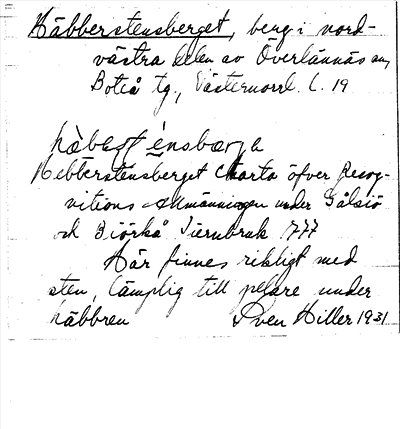 Häbberstensberget, berg i nord-
västra delen av Överlännäs sn,
Boteå tg., Västernorrl. L. 19
hàbast énsbærja
Hebberstensberget Charta öfver Recog-
nitions allmänningen under Gålsiö
och Biörkå Jernbruk 1777
Här finnes rikligt med
sten, lämplig till pelare under
häbbren Sven Hiller 1931